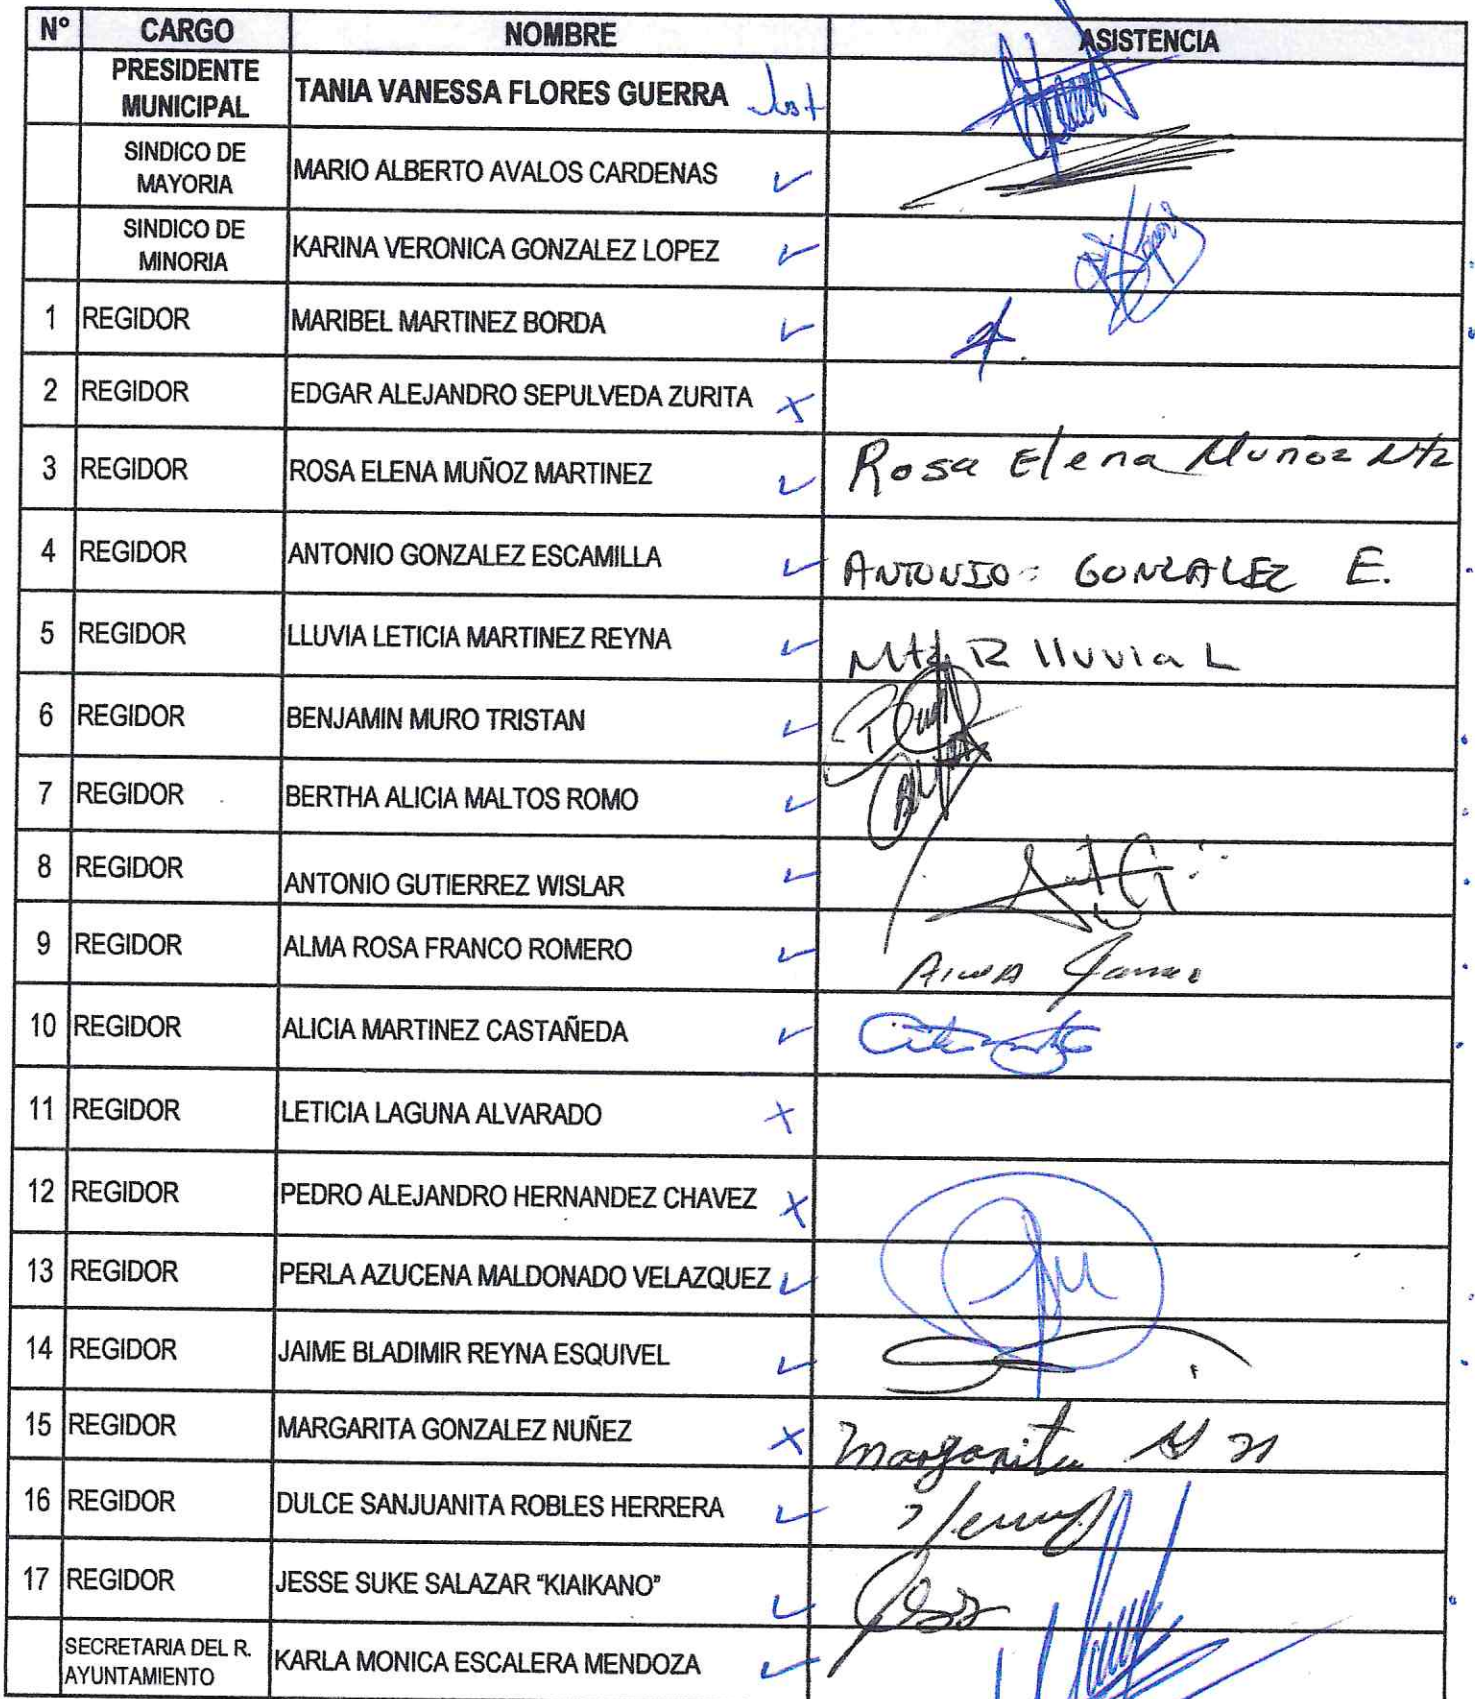 N° CARGO NOMBRE ASISTENCIA
PRESIDENTE
MUNICIPAL
TANIA VANESSA FLORES GUERRA Just
SINDICO DE
MAYORIA
MARIO ALBERTO AVALOS CARDENAS ✓
SINDICO DE
MINORIA
KARINA VERONICA GONZALEZ LOPEZ ✓
1 REGIDOR MARIBEL MARTINEZ BORDA ✓
2 REGIDOR EDGAR ALEJANDRO SEPULVEDA ZURITA X
3 REGIDOR ROSA ELENA MUÑOZ MARTINEZ ✓ Rosa Elena Muñoz Mtz
4 REGIDOR ANTONIO GONZALEZ ESCAMILLA ✓ ANTONIO GONZALEZ E.
5 REGIDOR LLUVIA LETICIA MARTINEZ REYNA ✓ Mtz R lluvia L
6 REGIDOR BENJAMIN MURO TRISTAN ✓
7 REGIDOR BERTHA ALICIA MALTOS ROMO ✓
8 REGIDOR ANTONIO GUTIERREZ WISLAR ✓
9 REGIDOR ALMA ROSA FRANCO ROMERO ✓ Alma
10 REGIDOR ALICIA MARTINEZ CASTAÑEDA ✓
11 REGIDOR LETICIA LAGUNA ALVARADO X
12 REGIDOR PEDRO ALEJANDRO HERNANDEZ CHAVEZ X
13 REGIDOR PERLA AZUCENA MALDONADO VELAZQUEZ ✓
14 REGIDOR JAIME BLADIMIR REYNA ESQUIVEL ✓
15 REGIDOR MARGARITA GONZALEZ NUÑEZ X Margarita
16 REGIDOR DULCE SANJUANITA ROBLES HERRERA ✓
17 REGIDOR JESSE SUKE SALAZAR "KIAIKANO" ✓
SECRETARIA DEL R.
AYUNTAMIENTO
KARLA MONICA ESCALERA MENDOZA ✓